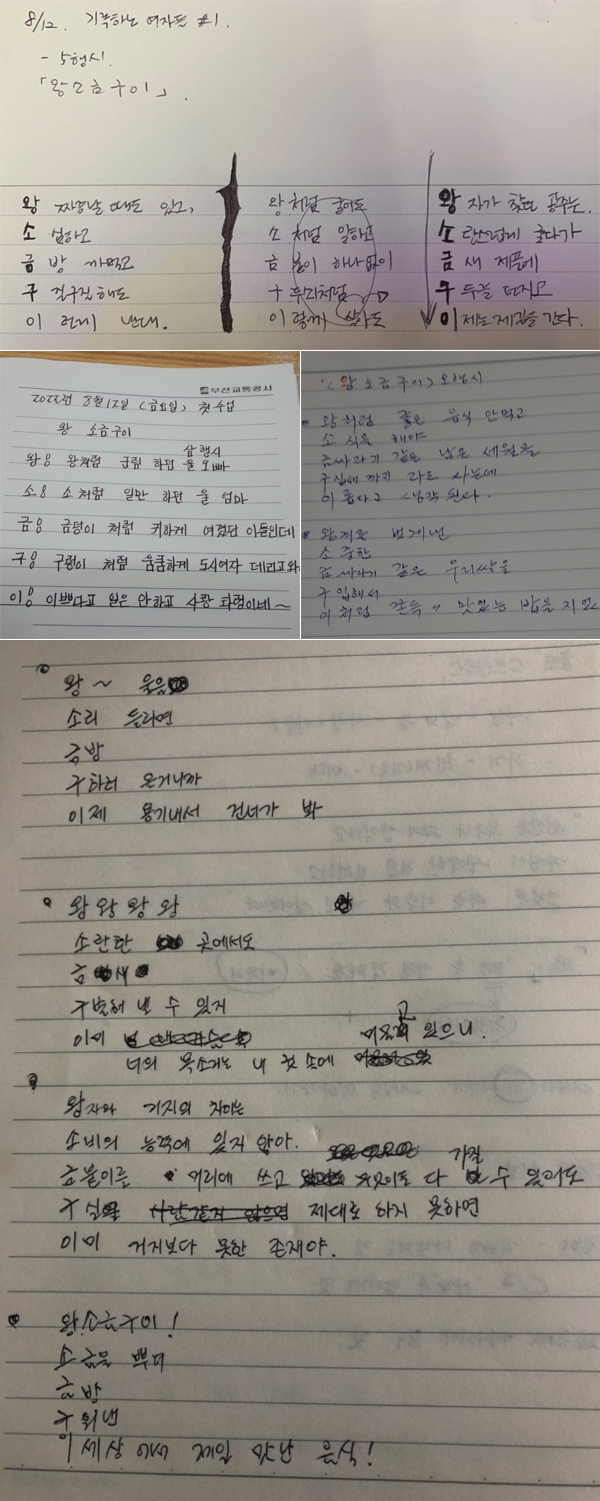 8/12. 기록하는 여자들 #1.
- 5행시.
「왕소금구이」.
왕 짜증날 때도 있고,
소 심하고
금 방 까먹고
구 질구질해도
이 런게 낸데.
왕처럼 굴어도
소 처럼 일하고
금 붙이 하나 없이
구 두쇠처럼
이 렇게 살아도
왕 자가 찾던 공주는.
소 란스럽게 굴다가
금 새 제풀에
구 두를 던지고
이제는 제 길을 간다.
부산교통공사
2022년 8월 12일 (금요일) 첫수업
왕 소금구이
삼행시
왕응 왕처럼 군림 하던 울 오빠
소응 소처럼 일만 하던 울 엄마
금응 금덩이 처럼 귀하게 여겼던 아들인데
구응 구렁이 처럼 음큼하게 도시여자 데리고와
이응 이쁘다고 일은 안하고 사랑 타령이네~
<왕 소금구이> 오행시
왕처럼 좋은 음식 안먹고
소 식을 해야
금싸라기 같은 남은 세월을
구십세 까지 라도 사는데
이 롭다고 생각 된다.
왕겨를 벗겨낸
소 중한
금싸라기 같은 우리쌀을
구 입해서
이처럼 쫀득" 맛있는 밥을 지었
왕~ 울음
소리 들리면
금방
구하러 온거니까
이제 용기내서 건너가 봐
왕 왕 왕 왕
소란한 곳에서도
금새
구별해 낼 수 있지
이미 머물고 있으니.
너의 목소리는 내 귓 속에
왕자와 거지의 차이는
소비의 능력에 있지 않아.
금붙이를 머리에 쓰고 무엇이든 다 가질 수 있어도
구실을 제대로 하지 못하면
이미 거지보다 못한 존재야.
왕소금구이!
소금을 뿌려
금 방
구워낸
이 세상 에서 제일 맛난 음식!